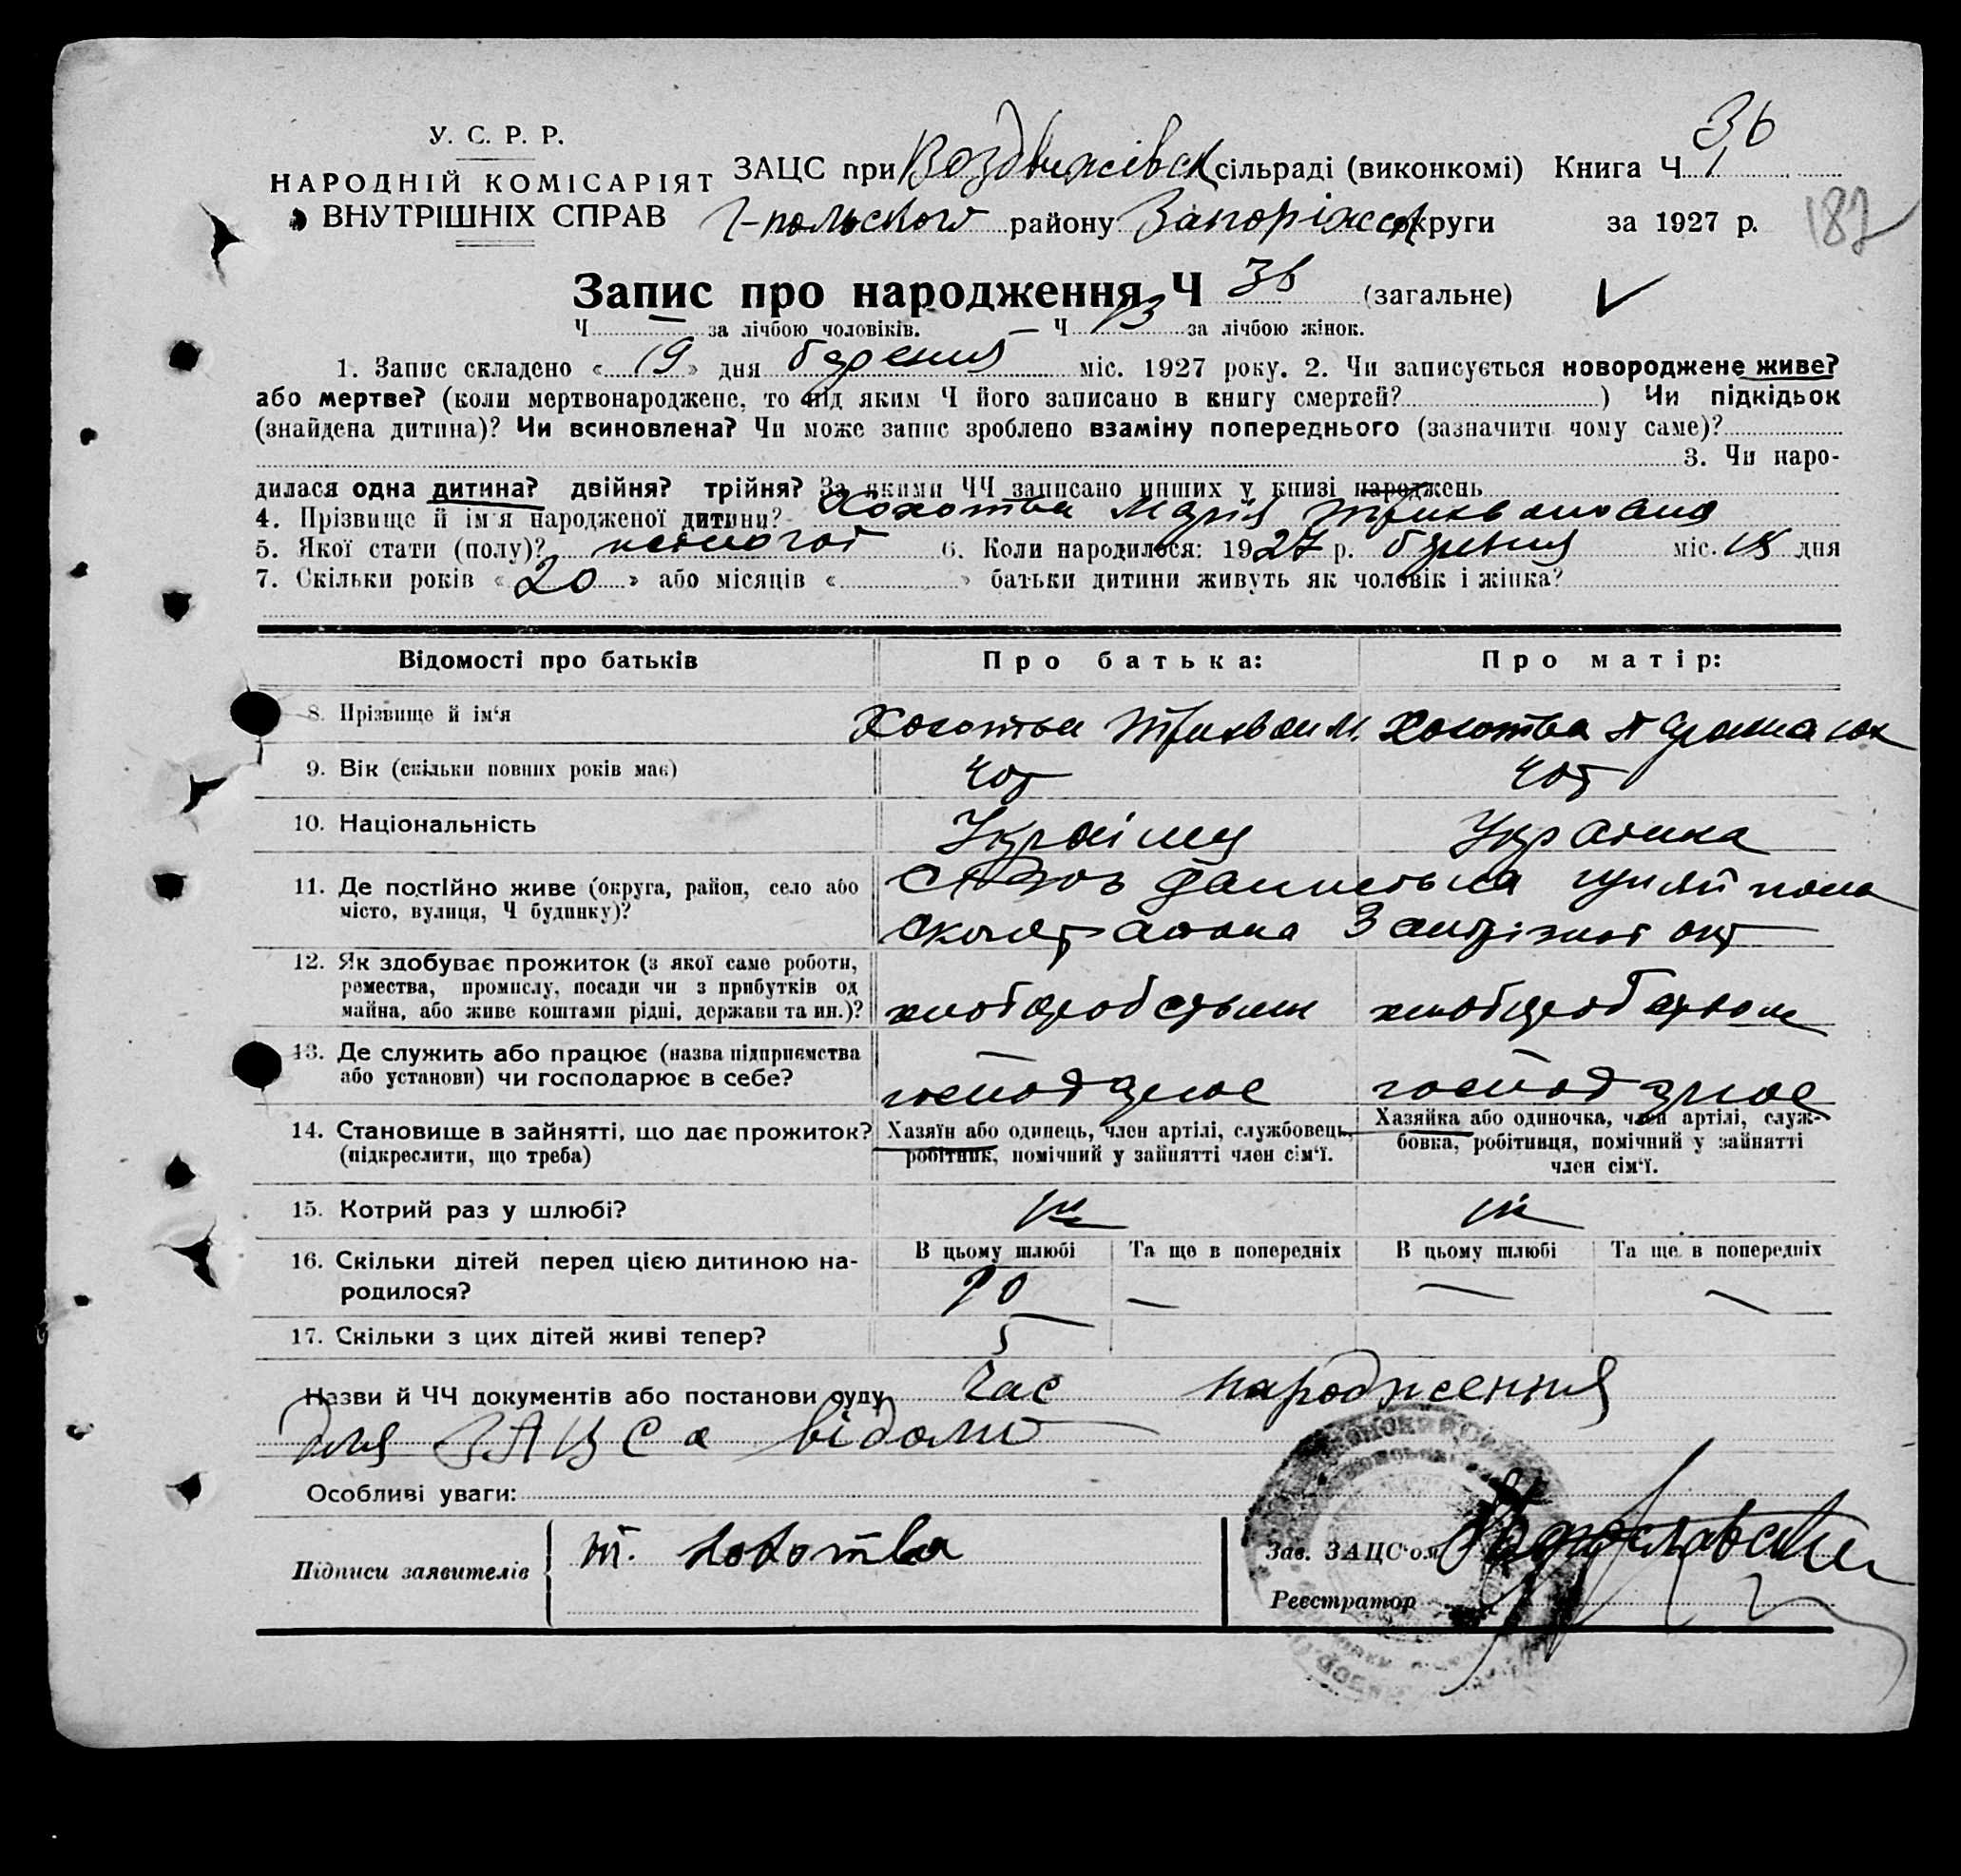 36
У. С. Р. Р.
НАРОДНІЙ КОМІСАРІЯТ
ВНУТРІШНІХ СПРАВ
ЗАЦС при Воздвижівск сільраді (виконкомі) Книга Ч. 1
Г-польского району Запоріжск округи за 1927 р.
187
Запис про народження Ч 36 (загальне)
Ч. — за лічбою чоловіків. — Ч. 13 за лічбою жінок.
1. Запис складено « 19 » дня березня міс. 1927 року. 2. Чи записується новороджене живе?
або мертве? (коли мертвонароджене, то під яким Ч його записано в книгу смертей? ) Чи підкідьок
(знайдена дитина)? Чи всиновлена? Чи може запис зроблено взаміну попереднього (зазначити чому саме)?
3. Чи наро-
дилася одна дитина? двійня? трійня? За якими ЧЧ записано инших у книзі народжень
4. Прізвище й ім'я народженої дитини? Хохотва Марія
5. Якої стати (полу)? 6. Коли народилося: 1927 р. березня міс. 18 дня
7. Скільки років « 20 » або місяців « » батьки дитини живуть як чоловік і жінка?
Відомості про батьків Про батька: Про матір:
8. Прізвище й ім'я Хохотва Хохотва
9. Вік (скільки повних років має) 40 40
10. Національність Українец Українка
11. Де постійно живе (округа, район, село або
місто, вулиця, Ч будинку)?
12. Як здобуває прожиток (з якої саме роботи,
ремества, промислу, посади чи з прибутків од
майна, або живе коштами рідні, держави та ин.)? хліборобством хліборобством
13. Де служить або працює (назва підприємства
або установи) чи господарює в себе? господарює господарює
14. Становище в зайнятті, що дає прожиток?
(підкреслити, що треба)
Хазяїн або одинець, член артілі, службовець,
робітник, помічний у зайнятті член сім'ї.
Хазяйка або одиночка, член артілі, служ-
бовка, робітниця, помічний у зайнятті
член сім'ї.
15. Котрий раз у шлюбі? 1й 1й
16. Скільки дітей перед цією дитиною на-
родилося?
В цьому шлюбі Та ще в попередніх В цьому шлюбі Та ще в попередніх
10 — — —
17. Скільки з цих дітей живі тепер? 5
Назви й ЧЧ документів або постанови суду час народження
для ЗАЦСа відомо
Особливі уваги:
Підписи заявителів Т. Хохотва
Зав. ЗАЦС'ом
Реєстратор